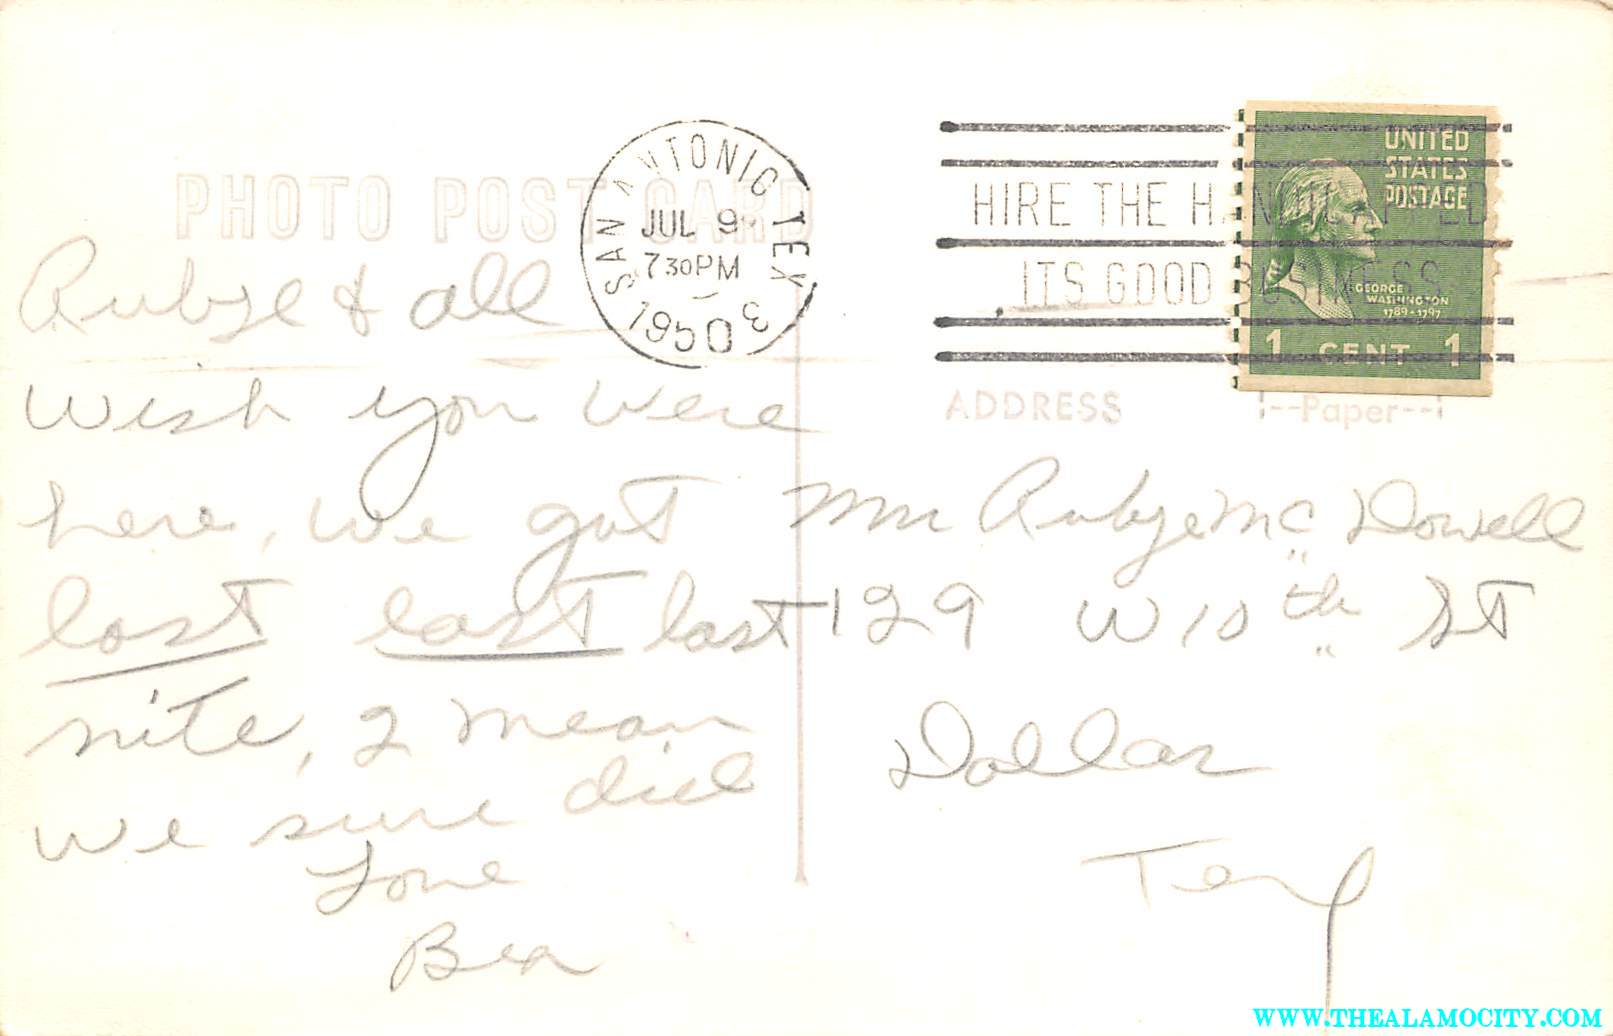 PHOTO POST CARD
SAN ANTONIO TEX
JUL 9
730PM
1950
3
HIRE THE HANDICAPPED
ITS GOOD BUSINESS
UNITED
STATES
POSTAGE
GEORGE
WASHINGTON
1789-1797
1 CENT 1
ADDRESS
--Paper--
Rubye & all
wish you were
here, we got
lost last last
nite, I mean
we sure did
Love
Bea
Rubye McDowell
129 W 10th St
Dallas
Tex
WWW.THEALAMOCITY.COM